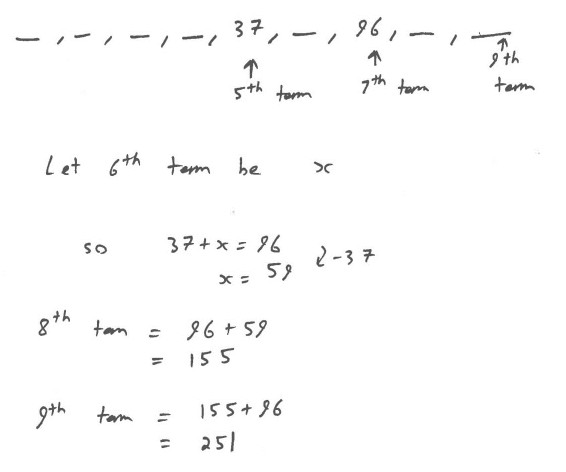 —, —, —, —, 37, —, 96, —, —
↑ ↑ ↑
5th term 7th term 9th term
Let 6th term be x
so 37 + x = 96
x = 59 ↙ -37
8th term = 96 + 59
= 155
9th term = 155 + 96
= 251